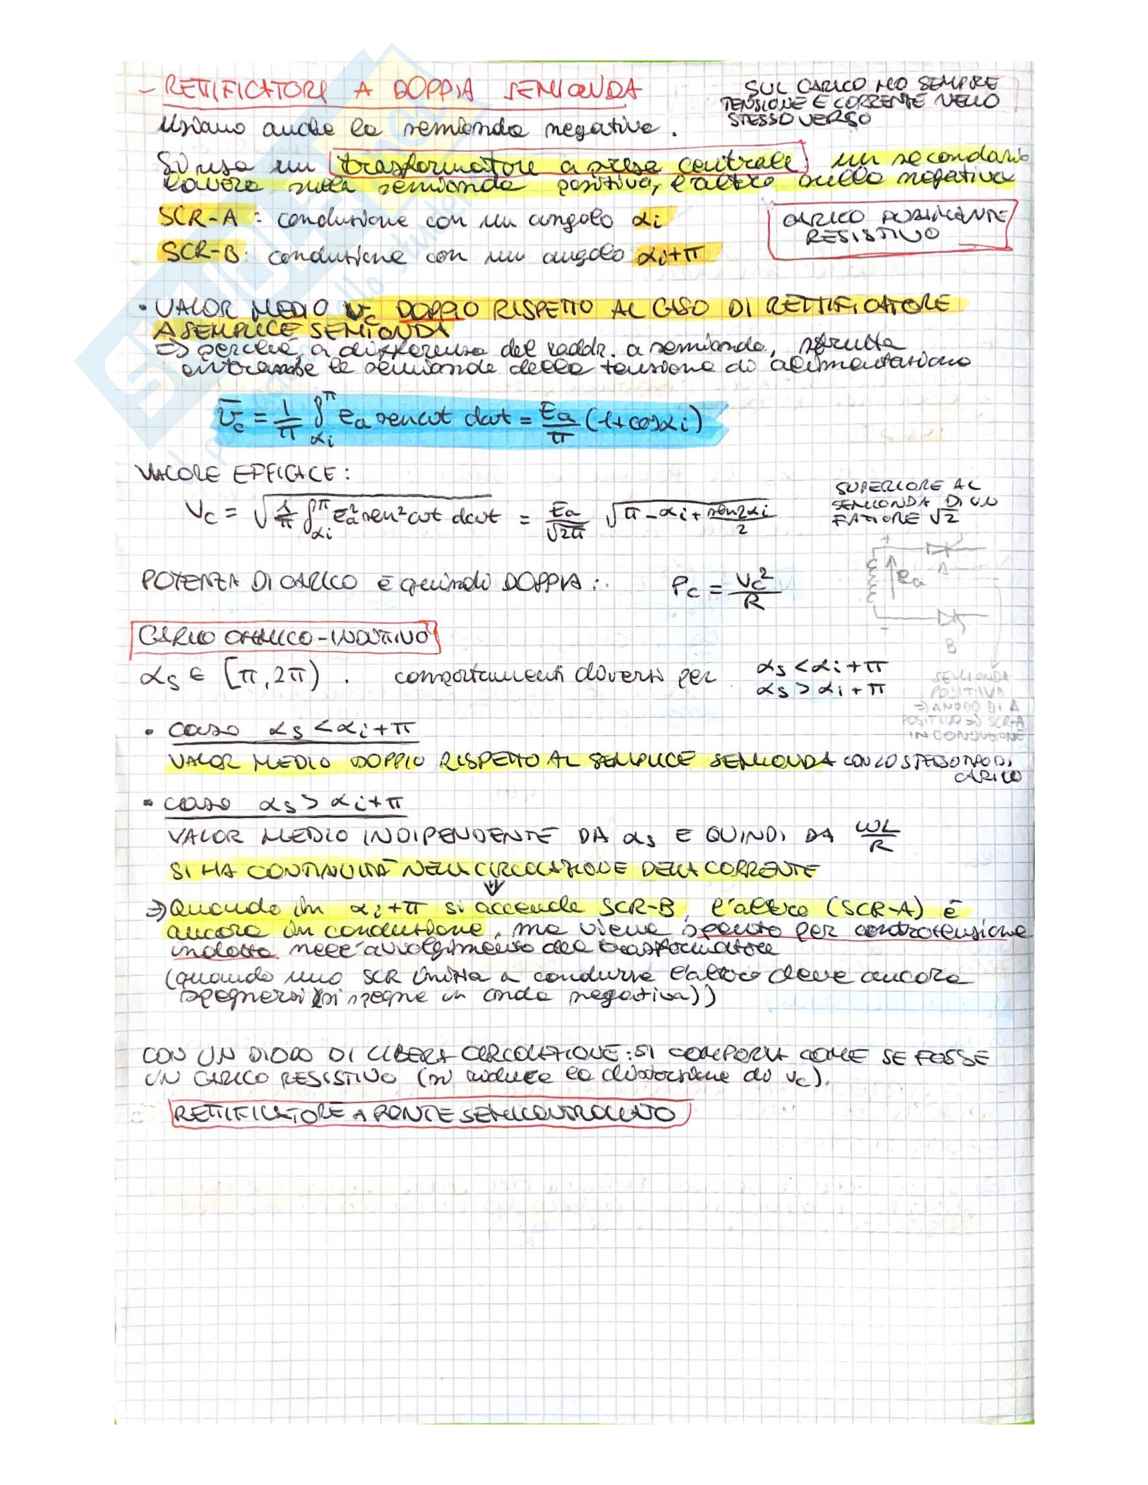 - RETTIFICATORI A DOPPIA SEMIONDA
SUL CARICO HO SEMPRE
TENSIONE E CORRENTE NELLO
STESSO VERSO
Usiamo anche la semionda negativa.
Si usa un trasformatore a presa centrale, un secondario
lavora sulla semionda positiva, l'altro sulla negativa
SCR-A: conduzione con un angolo αi
SCR-B: conduzione con un angolo αi+π
CARICO PURAMENTE
RESISTIVO
• VALOR MEDIO Vc DOPPIO RISPETTO AL CASO DI RETTIFICATORE
A SEMPLICE SEMIONDA
=> perché, a differenza del raddr. a semionda, sfrutta
entrambe le semionde della tensione di alimentazione
V̄c = 1/π ∫αi^π Ea senωt dωt = Ea/π (1+cosαi)
VALORE EFFICACE:
Vc = √(1/π ∫αi^π Ea² sen²ωt dωt) = Ea/√2π √(π-αi+sen2αi/2)
SUPERIORE AL
SEMIONDA DI UN
FATTORE √2
POTENZA DI CARICO è quindi DOPPIA: Pc = Vc²/R
+
A
ea
-
B
SEMIONDA
POSITIVA
=> ANODO DI A
POSITIVO => SCR-A
IN CONDUZIONE
CARICO OHMICO-INDUTTIVO
αs ∈ [π, 2π). comportamenti diversi per αs < αi+π
αs > αi+π
• caso αs < αi+π
VALOR MEDIO DOPPIO RISPETTO AL SEMPLICE SEMIONDA CON LO STESSO TIPO DI
CARICO
• caso αs > αi+π
VALOR MEDIO INDIPENDENTE DA αs E QUINDI DA ωL/R
SI HA CONTINUITÀ NELLA CIRCOLAZIONE DELLA CORRENTE
⇓
=> Quando in αi+π si accende SCR-B, l'altro (SCR-A) è
ancora in conduzione, ma viene spento per controtensione
indotta nell'avvolgimento del trasformatore
(quando uno SCR inizia a condurre l'altro deve ancora
spegnersi (si spegne in onda negativa))
CON UN DIODO DI LIBERA CIRCOLAZIONE: SI COMPORTA COME SE FOSSE
UN CARICO RESISTIVO (si riduce la distorsione di vc).
RETTIFICATORE A PONTE SEMICONTROLLATO